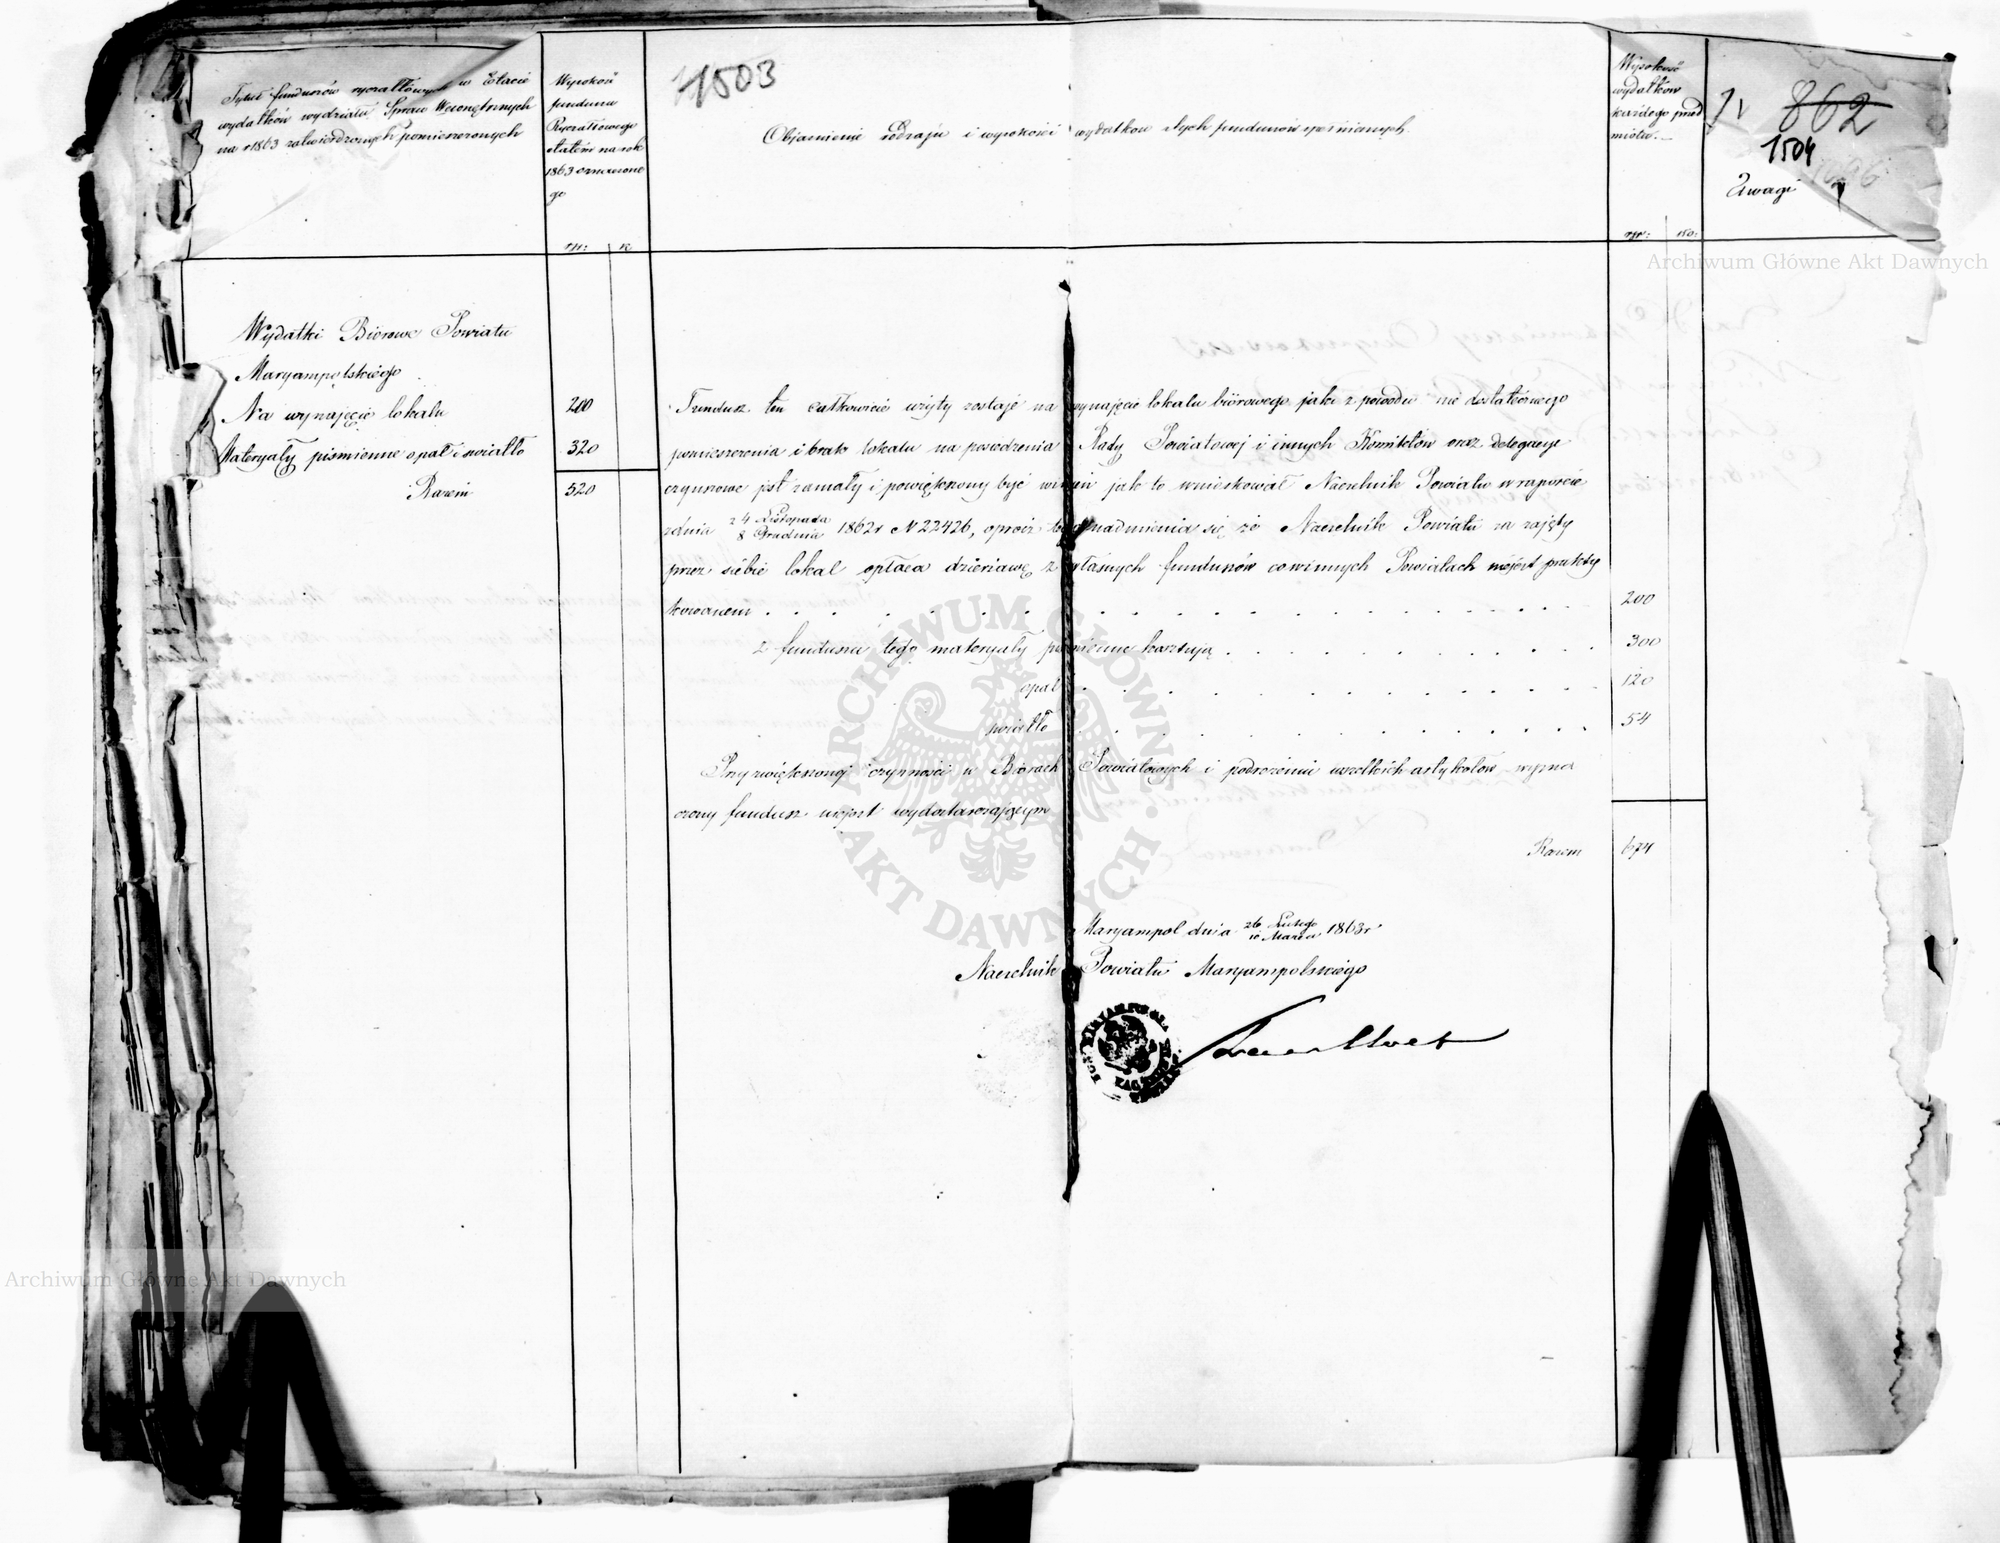 1503
Tytuł funduszów ryczałtowych w Etacie
wydatków wydziału Spraw Wewnętrznych
na r 1863 zatwierdzonych pomieszczonych
Wysokość
funduszu
Ryczałtowego
etatem na rok
1863 oznaczone
go
rsr: k
Objaśnienie rodzaju i wysokości wydatków z tych funduszów
Wysokość
wydatków
każdego przed
miotu.
rsr: ko:
862
1504
Uwagi
Archiwum Główne Akt Dawnych
Wydatki Biorowe Powiatu
Maryampolskiego
Na wynajęcie lokalu 200
Materyały piśmienne opał i światło 320
Razem 520
Fundusz ten całkowicie użyty zostaje na wynajęcie lokalu biórowego, jaki z powodu nie dostatecznego
pomieszczenia i braku lokalu na posiedzenia Rady Powiatowej i innych Komitetów oraz delegacye
czynszowe jest zamały i powiększony być winien jak to wnioskował Naczelnik Powiatu w raporcie
zdnia 24 Listopada
8 Grudnia 1862 r N 22426, oprócz tego nadmienia się że Naczelnik Powiatu za zajęty
przez siebie lokal opłaca dzierżawę z własnych funduszów co w innych Powiatach niejest prakty
kowanem . . . . 200
z funduszu tego materyały piśmienne kosztują . . . . 300
opał . . . . 120
światło . . . . 54
Przy zwiększonej czynności w Biórach Powiatowych i podrożeniu wszelkich artykułów wyzna
czony fundusz niejest wydostarczającym
Razem 674
Maryampol dnia 26 Lutego
10 Marca 1863 r
Naczelnik Powiatu Maryampolskiego
ARCHIWUM GŁÓWNE
AKT DAWNYCH
Archiwum Główne Akt Dawnych